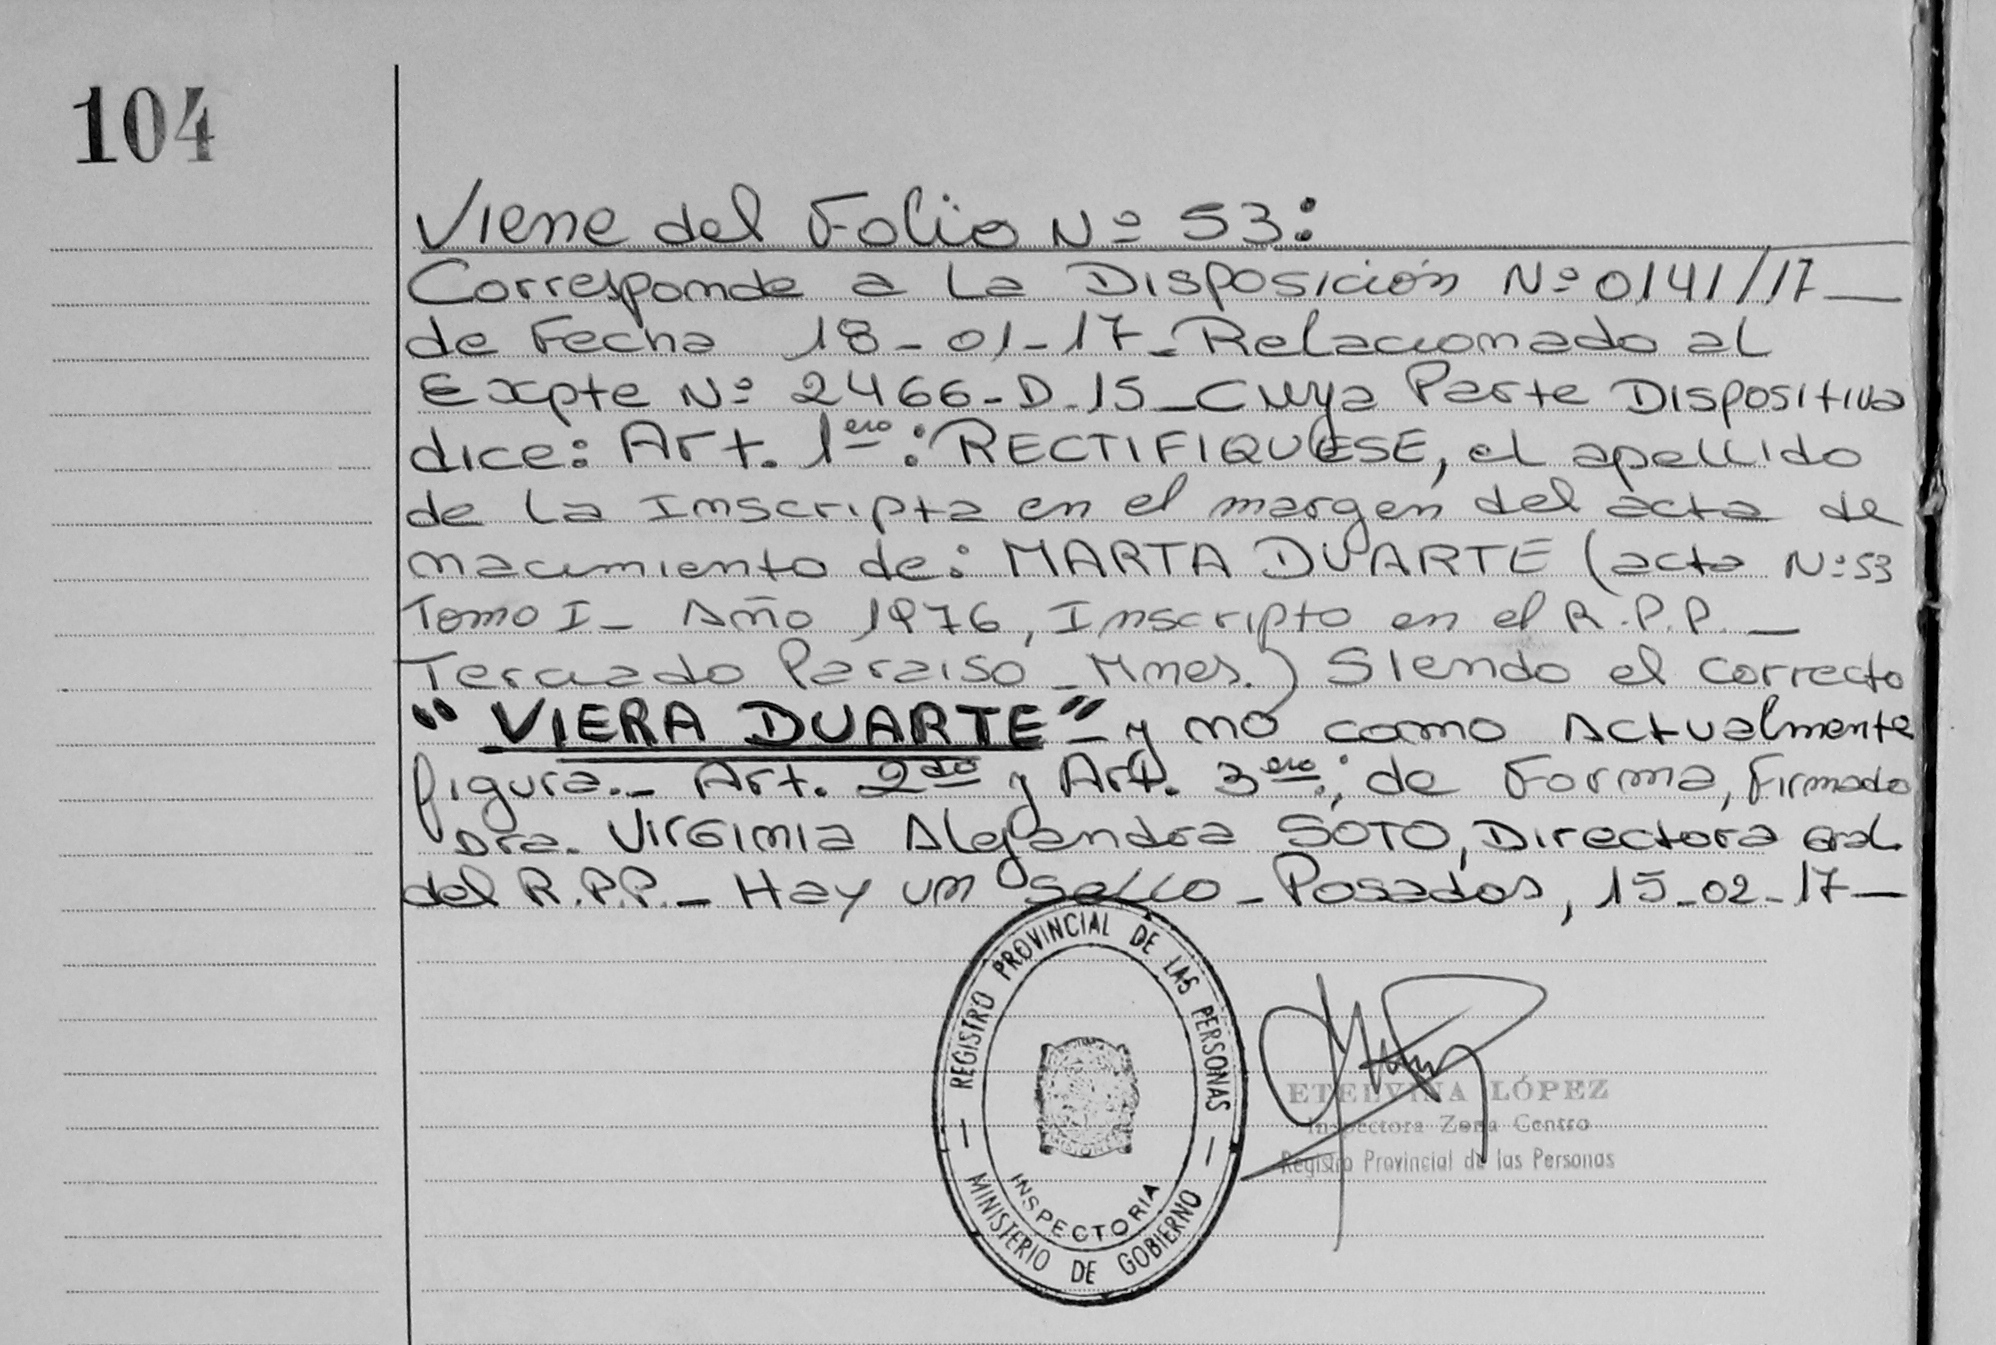 104
Viene del Folio Nº 53:
Corresponde a La Disposición Nº 0141/17
de Fecha 18-01-17-Relacionado al
Expte Nº 2466-D-15-Cuya Parte Dispositiva
dice: Art. 1ero: RECTIFIQUESE, el apellido
de La Inscripta en el margen del acta de
nacimiento de: MARTA DUARTE (acta Nº 53
Tomo I- Año 1976, Inscripto en el R.P.P.-
Terciado Paraiso-Mnes.) Siendo el correcto
"VIERA DUARTE" y no como Actualmente
figura.- Art. 2do y Art. 3ero.; de Forma, Firmado
Dra. Virginia Alejandra SOTO, Directora Gral.
del R.P.P.- Hay un Sello-Posadas, 15-02-17-
REGISTRO PROVINCIAL DE LAS PERSONAS
INSPECTORIA
MINISTERIO DE GOBIERNO
ETELVINA LÓPEZ
Inspectora Zona Centro
Registro Provincial de las Personas